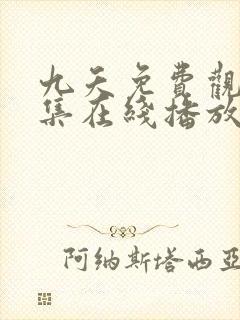 九天免費觀
集在綫播放
阿纳斯塔西亚